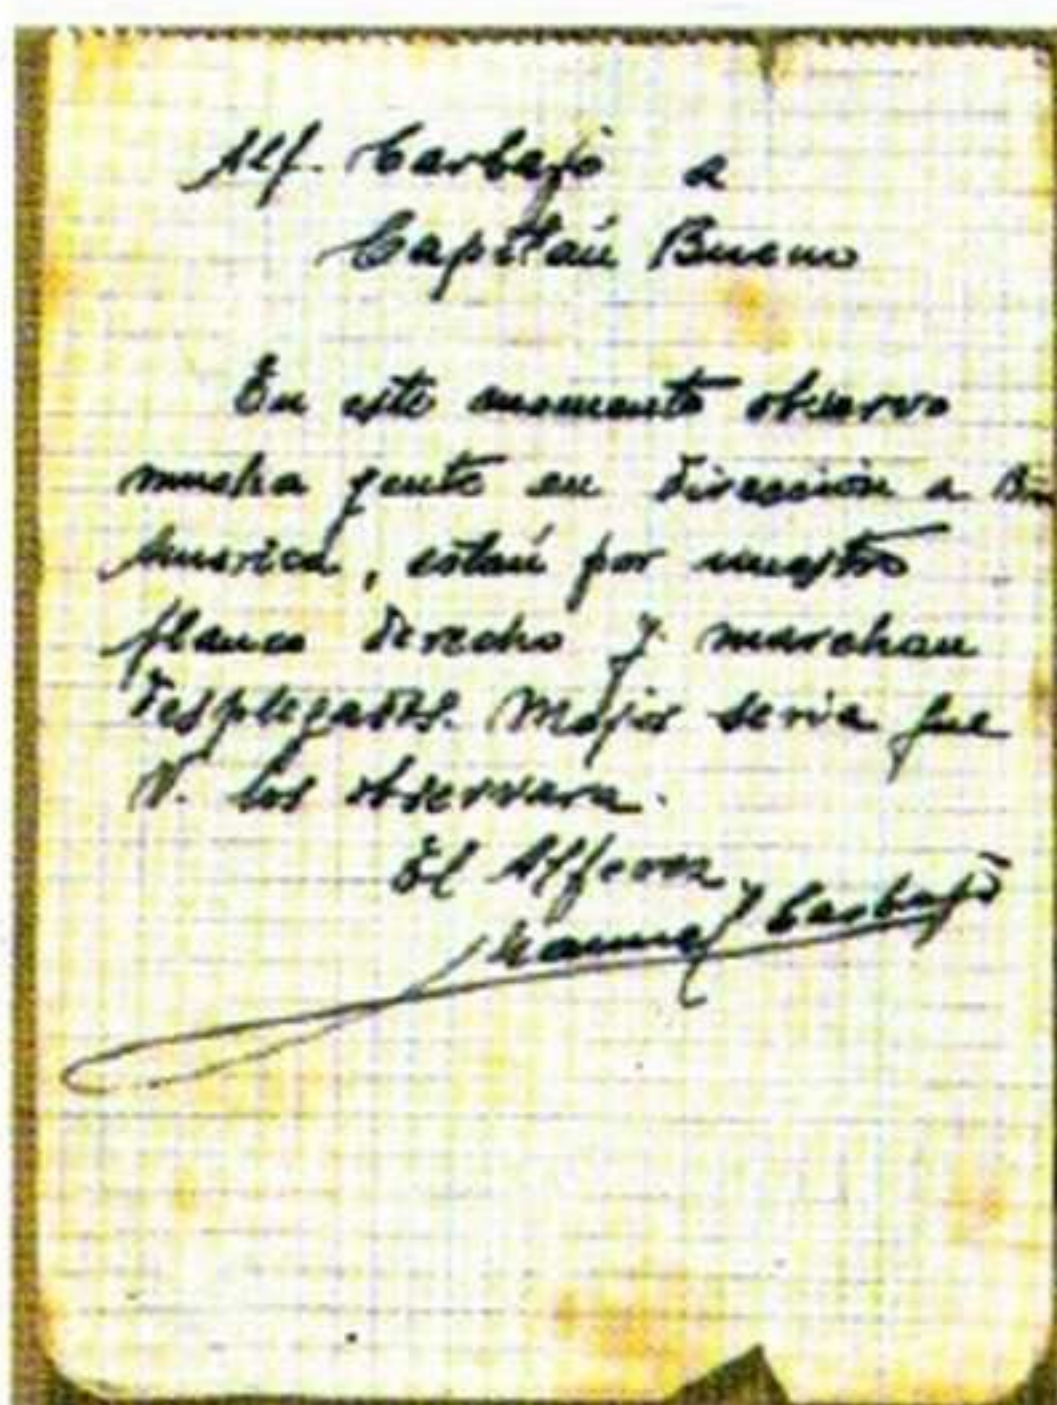 Alf. Carbajo a
Capitán Bueno
En este momento observo
mucha gente en dirección a
America, están por nuestro
flanco derecho y marchan
desplegados. Mejor seria que
V. los observara.
El Alferez
Manuel Carbajo